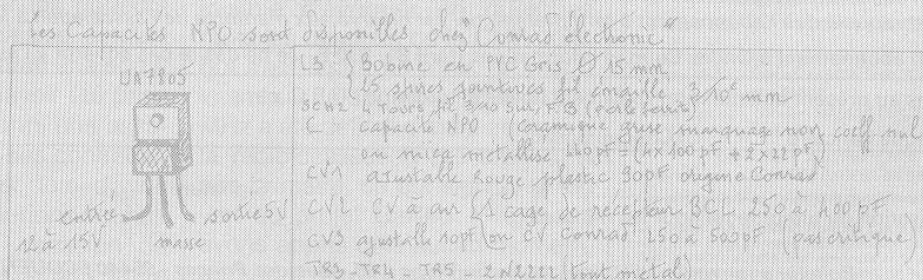 Les Capacités NPO sont disponibles chez "Conrad électronic"
UA7805
entrée
12 à 15V
masse
sortie 5V
L3 { Bobine en PVC Gris Ø 15 mm
25 spires jointives fil émaillé 3/10e mm
SCH2 4 Tours fil 3/10 sur FB (perle ferrite)
C capacité NPO (céramique grise marquage noir coeff nul
ou mica métallisé 440pF = (4x100pF + 2x22pF)
CV1 ajustable Rouge plastic 90pF origine Conrad
CV2 CV à air (1 cage de récepteur BCL 250 à 400 pF
CV3 ajustable 10pF (ou CV Conrad 250 à 500pF (pas critique)
TR3 - TR4 - TR5 - 2N2222 (tout métal)